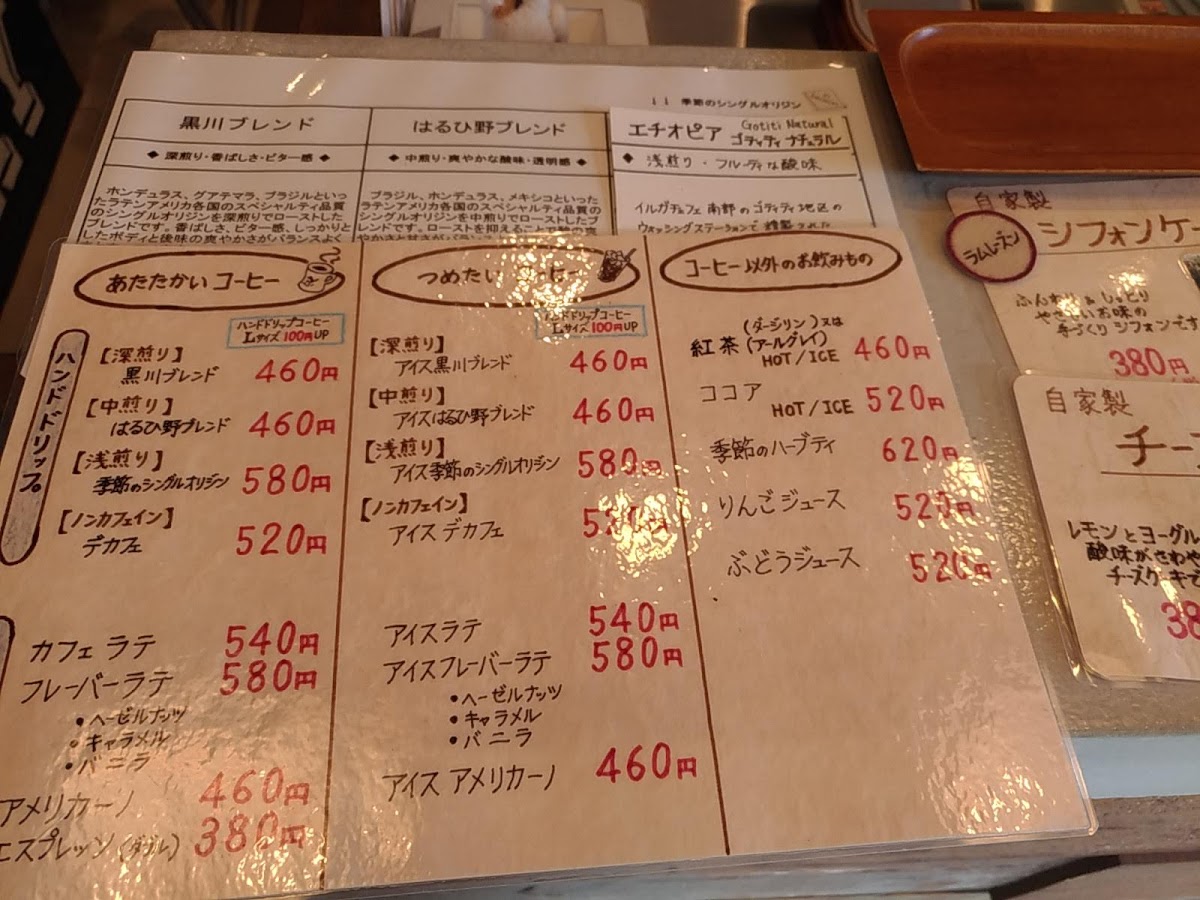 季節のシングルオリジン
黒川ブレンド
◆ 深煎り・香ばしさ・ビター感 ◆
ホンデュラス、グアテマラ、ブラジルといっ
たラテンアメリカ各国のスペシャルティ品質
のシングルオリジンを深煎りでローストした
ブレンドです。香ばしさ、ビター感、しっかりと
したボディと後味の爽やかさがバランスよく
はるひ野ブレンド
◆ 中煎り・爽やかな酸味・透明感 ◆
ブラジル、ホンデュラス、メキシコといった
ラテンアメリカ各国のスペシャルティ品質の
シングルオリジンを中煎りでローストしたブ
レンドです。ローストを抑えることで
エチオピア Gotiti Natural
ゴティティ ナチュラル
◆ 浅煎り・フルーティな酸味
イルガチェフェ南部のゴティティ地区の
ウォッシングステーションで精製された
あたたかいコーヒー
ハンドドリップコーヒー
Lサイズ 100円UP
ハンドドリップ
【深煎り】
黒川ブレンド 460円
【中煎り】
はるひ野ブレンド 460円
【浅煎り】
季節のシングルオリジン 580円
【ノンカフェイン】
デカフェ 520円
カフェラテ 540円
フレーバーラテ 580円
・ヘーゼルナッツ
・キャラメル
・バニラ
アメリカーノ 460円
エスプレッソ(ダブル) 380円
つめたいコーヒー
ハンドドリップコーヒー
Lサイズ 100円UP
【深煎り】
アイス黒川ブレンド 460円
【中煎り】
アイスはるひ野ブレンド 460円
【浅煎り】
アイス季節のシングルオリジン 580円
【ノンカフェイン】
アイスデカフェ 520円
アイスラテ 540円
アイスフレーバーラテ 580円
・ヘーゼルナッツ
・キャラメル
・バニラ
アイスアメリカーノ 460円
コーヒー以外のお飲みもの
紅茶 (ダージリン)又は
(アールグレイ)
HOT/ICE 460円
ココア HOT/ICE 520円
季節のハーブティ 620円
りんごジュース 520円
ぶどうジュース 520円
自家製
ラムレーズン
シフォンケー
ふんわり&しっとり
やさしいお味の
手づくりシフォンです
380円
自家製
チー
レモンとヨーグル
酸味がさわや
チーズケーキで
38